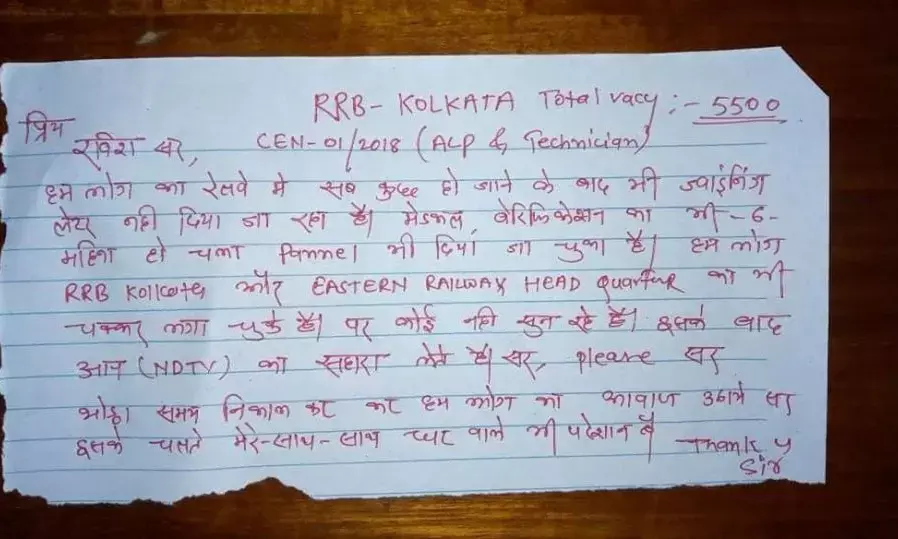 RRB- KOLKATA Total vacy :- 5500
प्रिय
रविश सर, CEN-01/2018 (ALP & Technician)
हम लोग का रेलवे मे सब कुछ हो जाने के बाद भी ज्वाइंनिंग
लेटर नही दिया जा रहा है। मेडिकल, वेरिफिकेशन का भी -6-
महिना हो चला Pannel भी दिया जा चुका है। हम लोग
RRB Kolkata और EASTERN RAILWAY HEAD Quarter का भी
चक्कर लगा चुके है। पर कोई नही सुन रहे है। इसके बाद
आप (NDTV) का सहारा लेते है। सर, please सर
थोड़ा समय निकाल कर कर हम लोग का आवाज उठाये सर
इसके चलते मेरे-साथ-साथ घर वाले भी परेशान है
Thank y
Sir